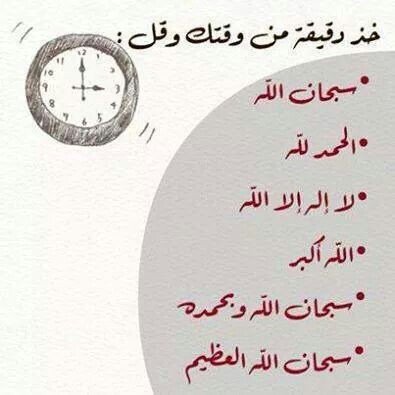 خذ دقيقة من وقتك وقل :
• سبحان الله
• الحمد لله
• لا إله إلا الله
• الله أكبر
• سبحان الله وبحمده
• سبحان الله العظيم
12
1
2
3
4
5
6
7
8
9
10
11